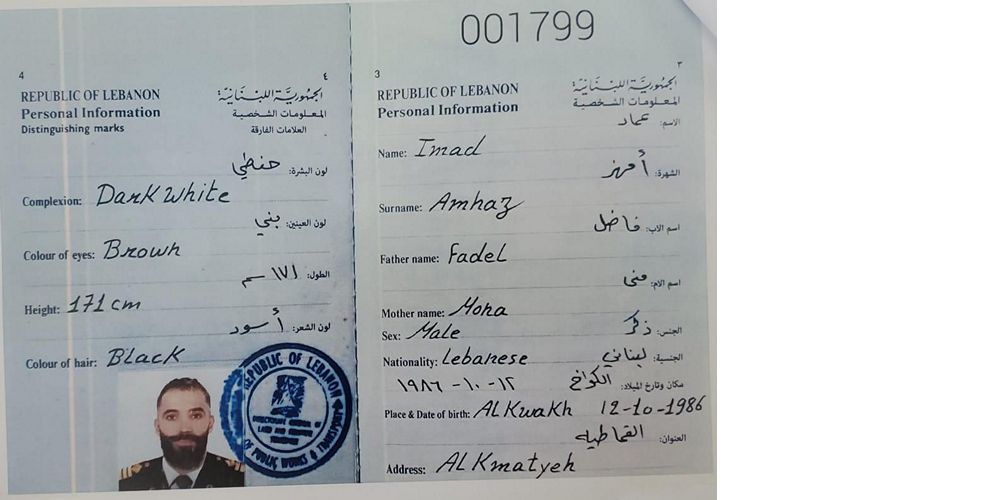 001799
4
٤
REPUBLIC OF LEBANON
الجمهوريّة اللبنانيّة
Personal Information
المعلومات الشخصية
Distinguishing marks
العلامات الفارقة
لون البشرة: حنطي
Complexion: Dark White
لون العينين: بني
Colour of eyes: Brown
الطول: ١٧١ سم
Height: 171 cm
لون الشعر: أسود
Colour of hair: Black
REPUBLIC OF LEBANON
OF PUBLIC WORKS & TRANSPORT
3
٣
REPUBLIC OF LEBANON
الجمهوريّة اللبنانيّة
Personal Information
المعلومات الشخصية
الاسم: عماد
Name: Imad
الشهرة: أمهز
Surname: Amhaz
اسم الاب: فاضل
Father name: Fadel
اسم الام: منى
Mother name: Mona
الجنس: ذكر
Sex: Male
الجنسية: لبناني
Nationality: Lebanese
مكان وتاريخ الميلاد: الكواخ ١٢-١٠-١٩٨٦
Place & Date of birth: AL Kwakh 12-10-1986
العنوان: القماطيه
Address: AL Kmatyeh